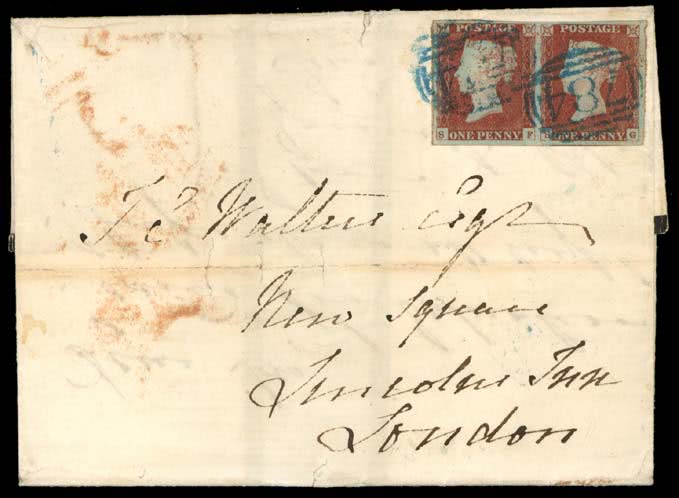 POSTAGE POSTAGE
S ONE PENNY F ONE PENNY G
Walters Esqr
New Square
Lincolns Inn
London